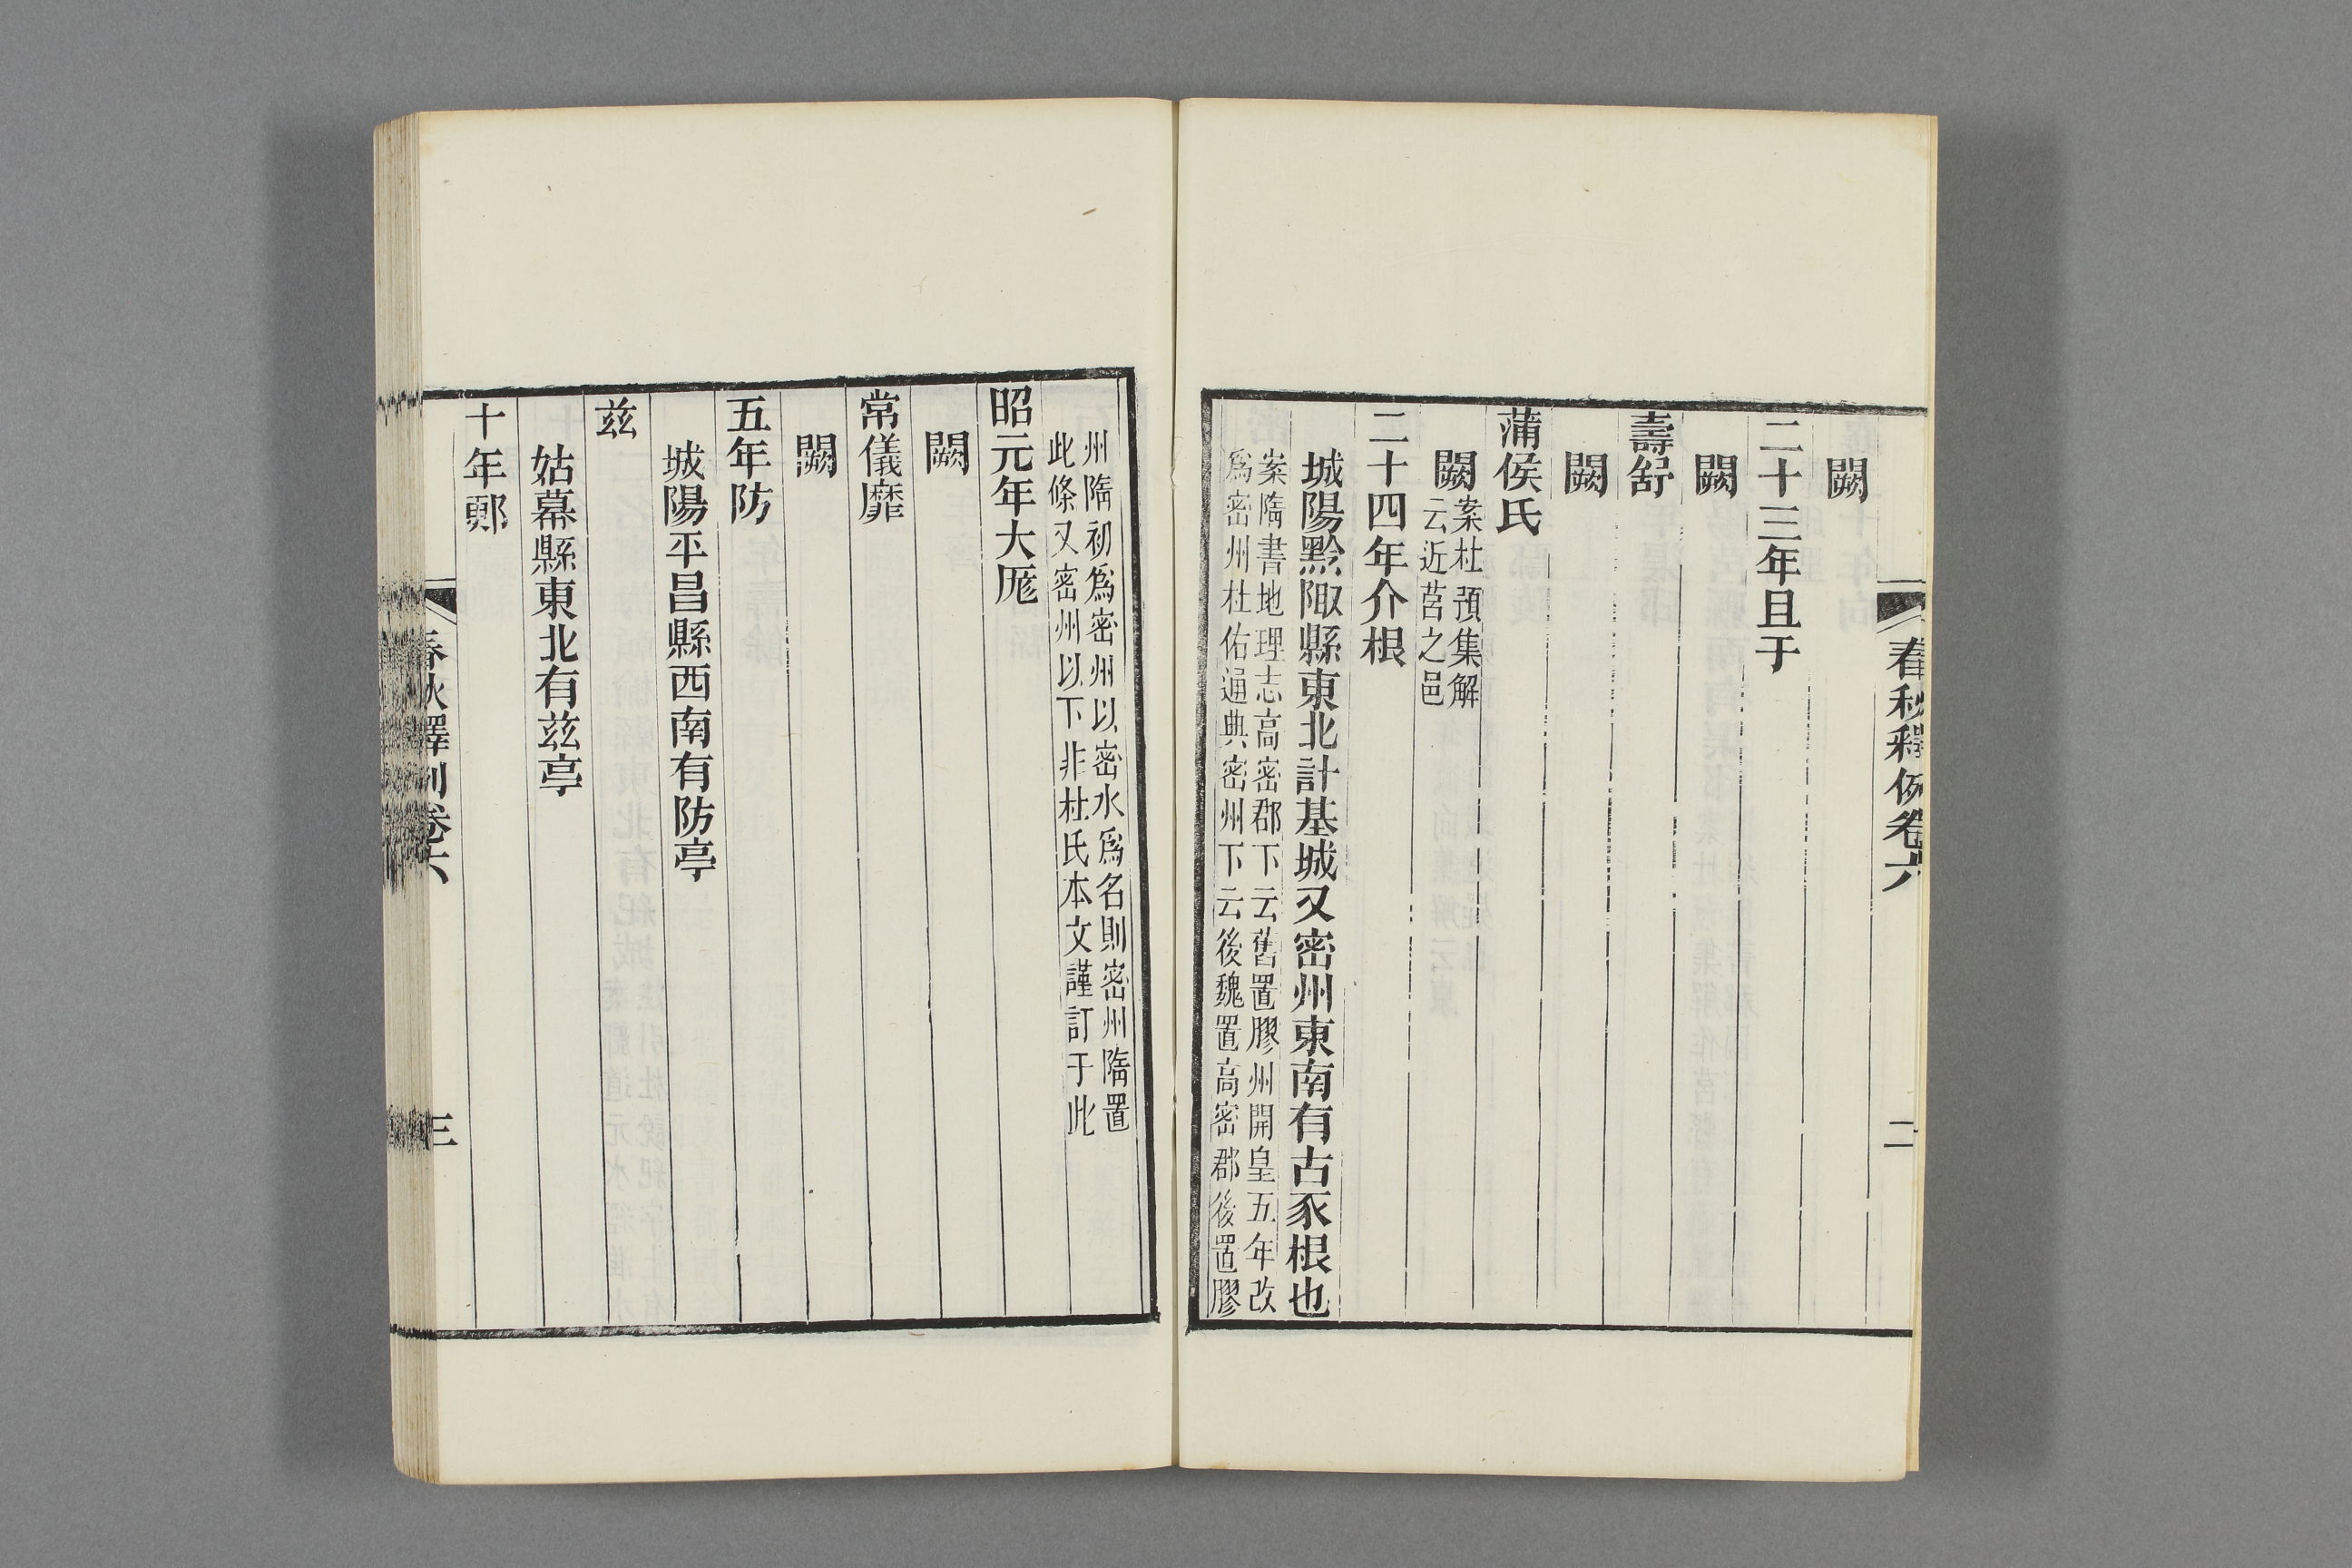 春秋釋例卷六
二
闕
二十三年且于
闕
壽舒
闕
蒲侯氏
闕案杜預集解
云近莒之邑
二十四年介根
城陽黔陬縣東北計基城又密州東南有古豕根也
案隋書地理志高密郡下云舊置膠州開皇五年改
爲密州杜佑通典密州下云後魏置高密郡後置膠
州隋初爲密州以密水爲名則密州隋置
此條又密州以下非杜氏本文謹訂于此
昭元年大厖
闕
常儀靡
闕
五年防
城陽平昌縣西南有防亭
茲
姑幕縣東北有茲亭
十年郠
春秋釋例卷六
三